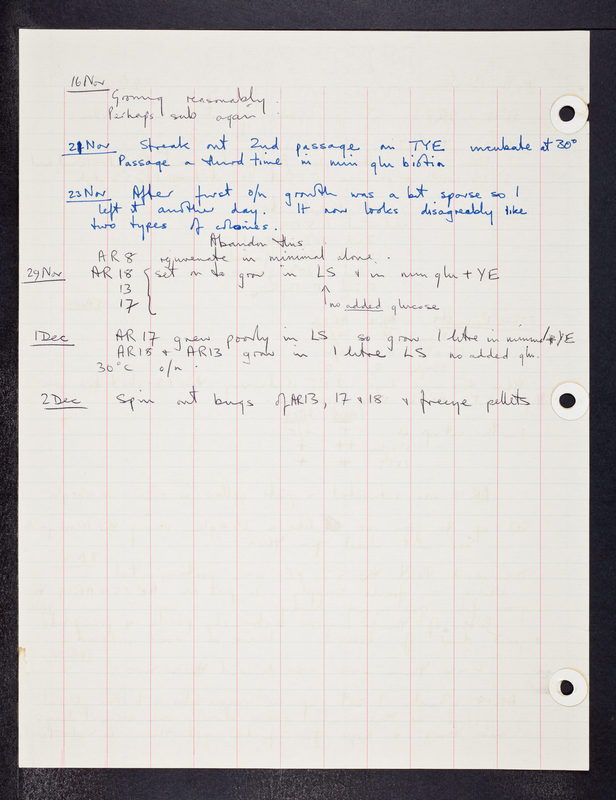 16 Nov
Growing reasonably.
Perhaps sub again.
21 Nov Streak out 2nd passage on TYE incubate at 30°
Passage a third time in min glu biotin
23 Nov After first o/n growth was a bit sparse so I
left it another day. It now looks disagreably like
two types of colonies.
Abandon this.
AR 8 rejuvenate in minimal alone.
29 Nov AR 18 { set on to grow in LS & in min glu + YE
13
17
↑ no added glucose
1 Dec AR 17 grew poorly in LS so grow 1 litre in minimal + YE
AR18 & AR13 grow in 1 litre LS no added glu.
30°C o/n.
2 Dec Spin out bugs of AR13, 17 & 18 & freeze pellets